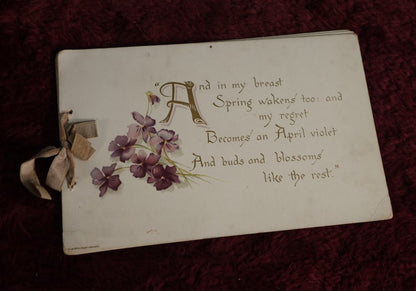 "And in my breast
Spring wakens too: and
my regret
Becomes an April violet
And buds and blossoms
like the rest."